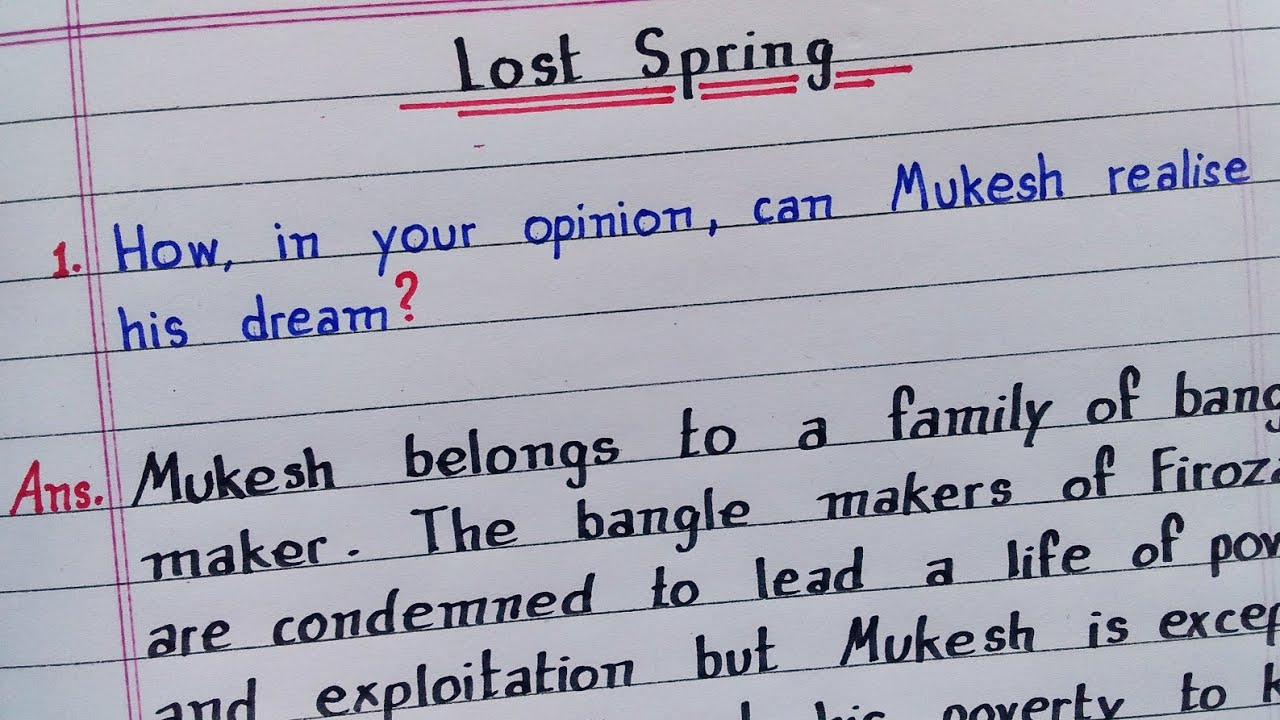 Lost Spring
1. How, in your opinion, can Mukesh realise
his dream?
Ans. Mukesh belongs to a family of bang
maker. The bangle makers of Firoza
are condemned to lead a life of pov
and exploitation but Mukesh is excep
his poverty to k